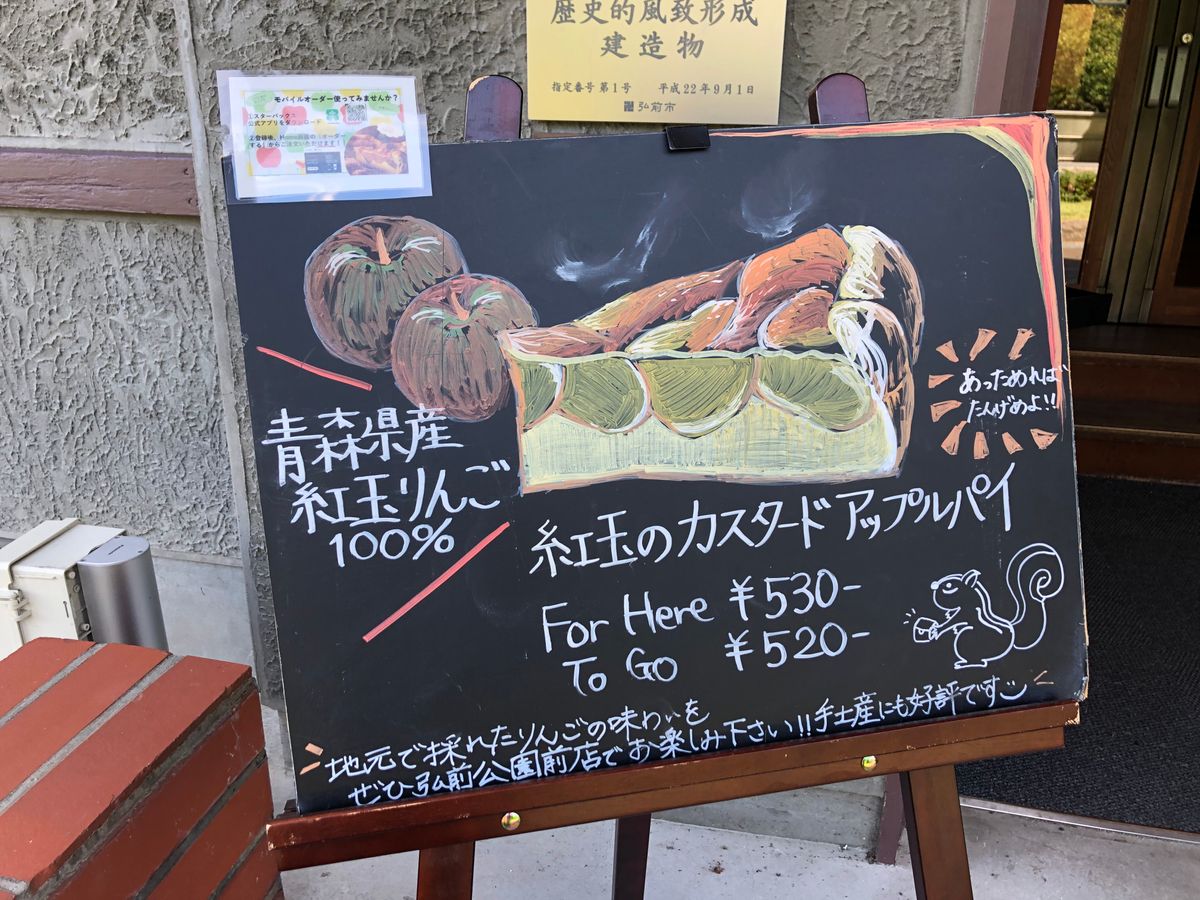 歴史的風致形成
建造物
指定番号 第1号 平成22年9月1日
弘前市
モバイルオーダー使ってみませんか？
①スターバックス
公式アプリをダウンロード
あっためれば
たんげめよ!!
青森県産
紅玉りんご
100%
紅玉のカスタードアップルパイ
For Here ¥530-
To Go ¥520-
地元で採れたりんごの味わいを
ぜひ弘前公園前店でお楽しみ下さい!!手土産にも好評です